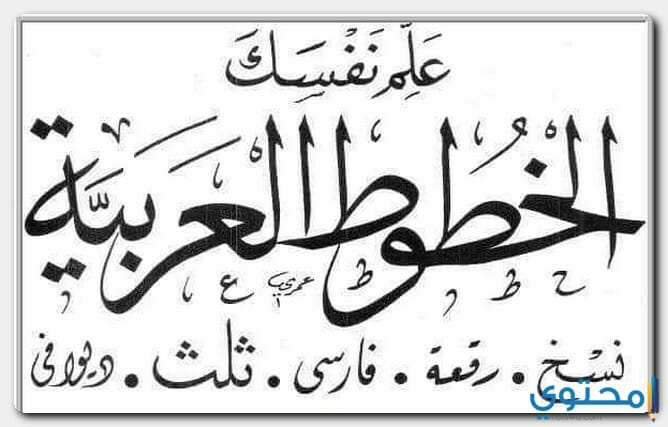 عَلِّم نَفْسِكَ
الخُطُوط العَرَبيَّة
عمري
نسْخ . رقعة . فارسى . ثلث . ديوانى
محتوي